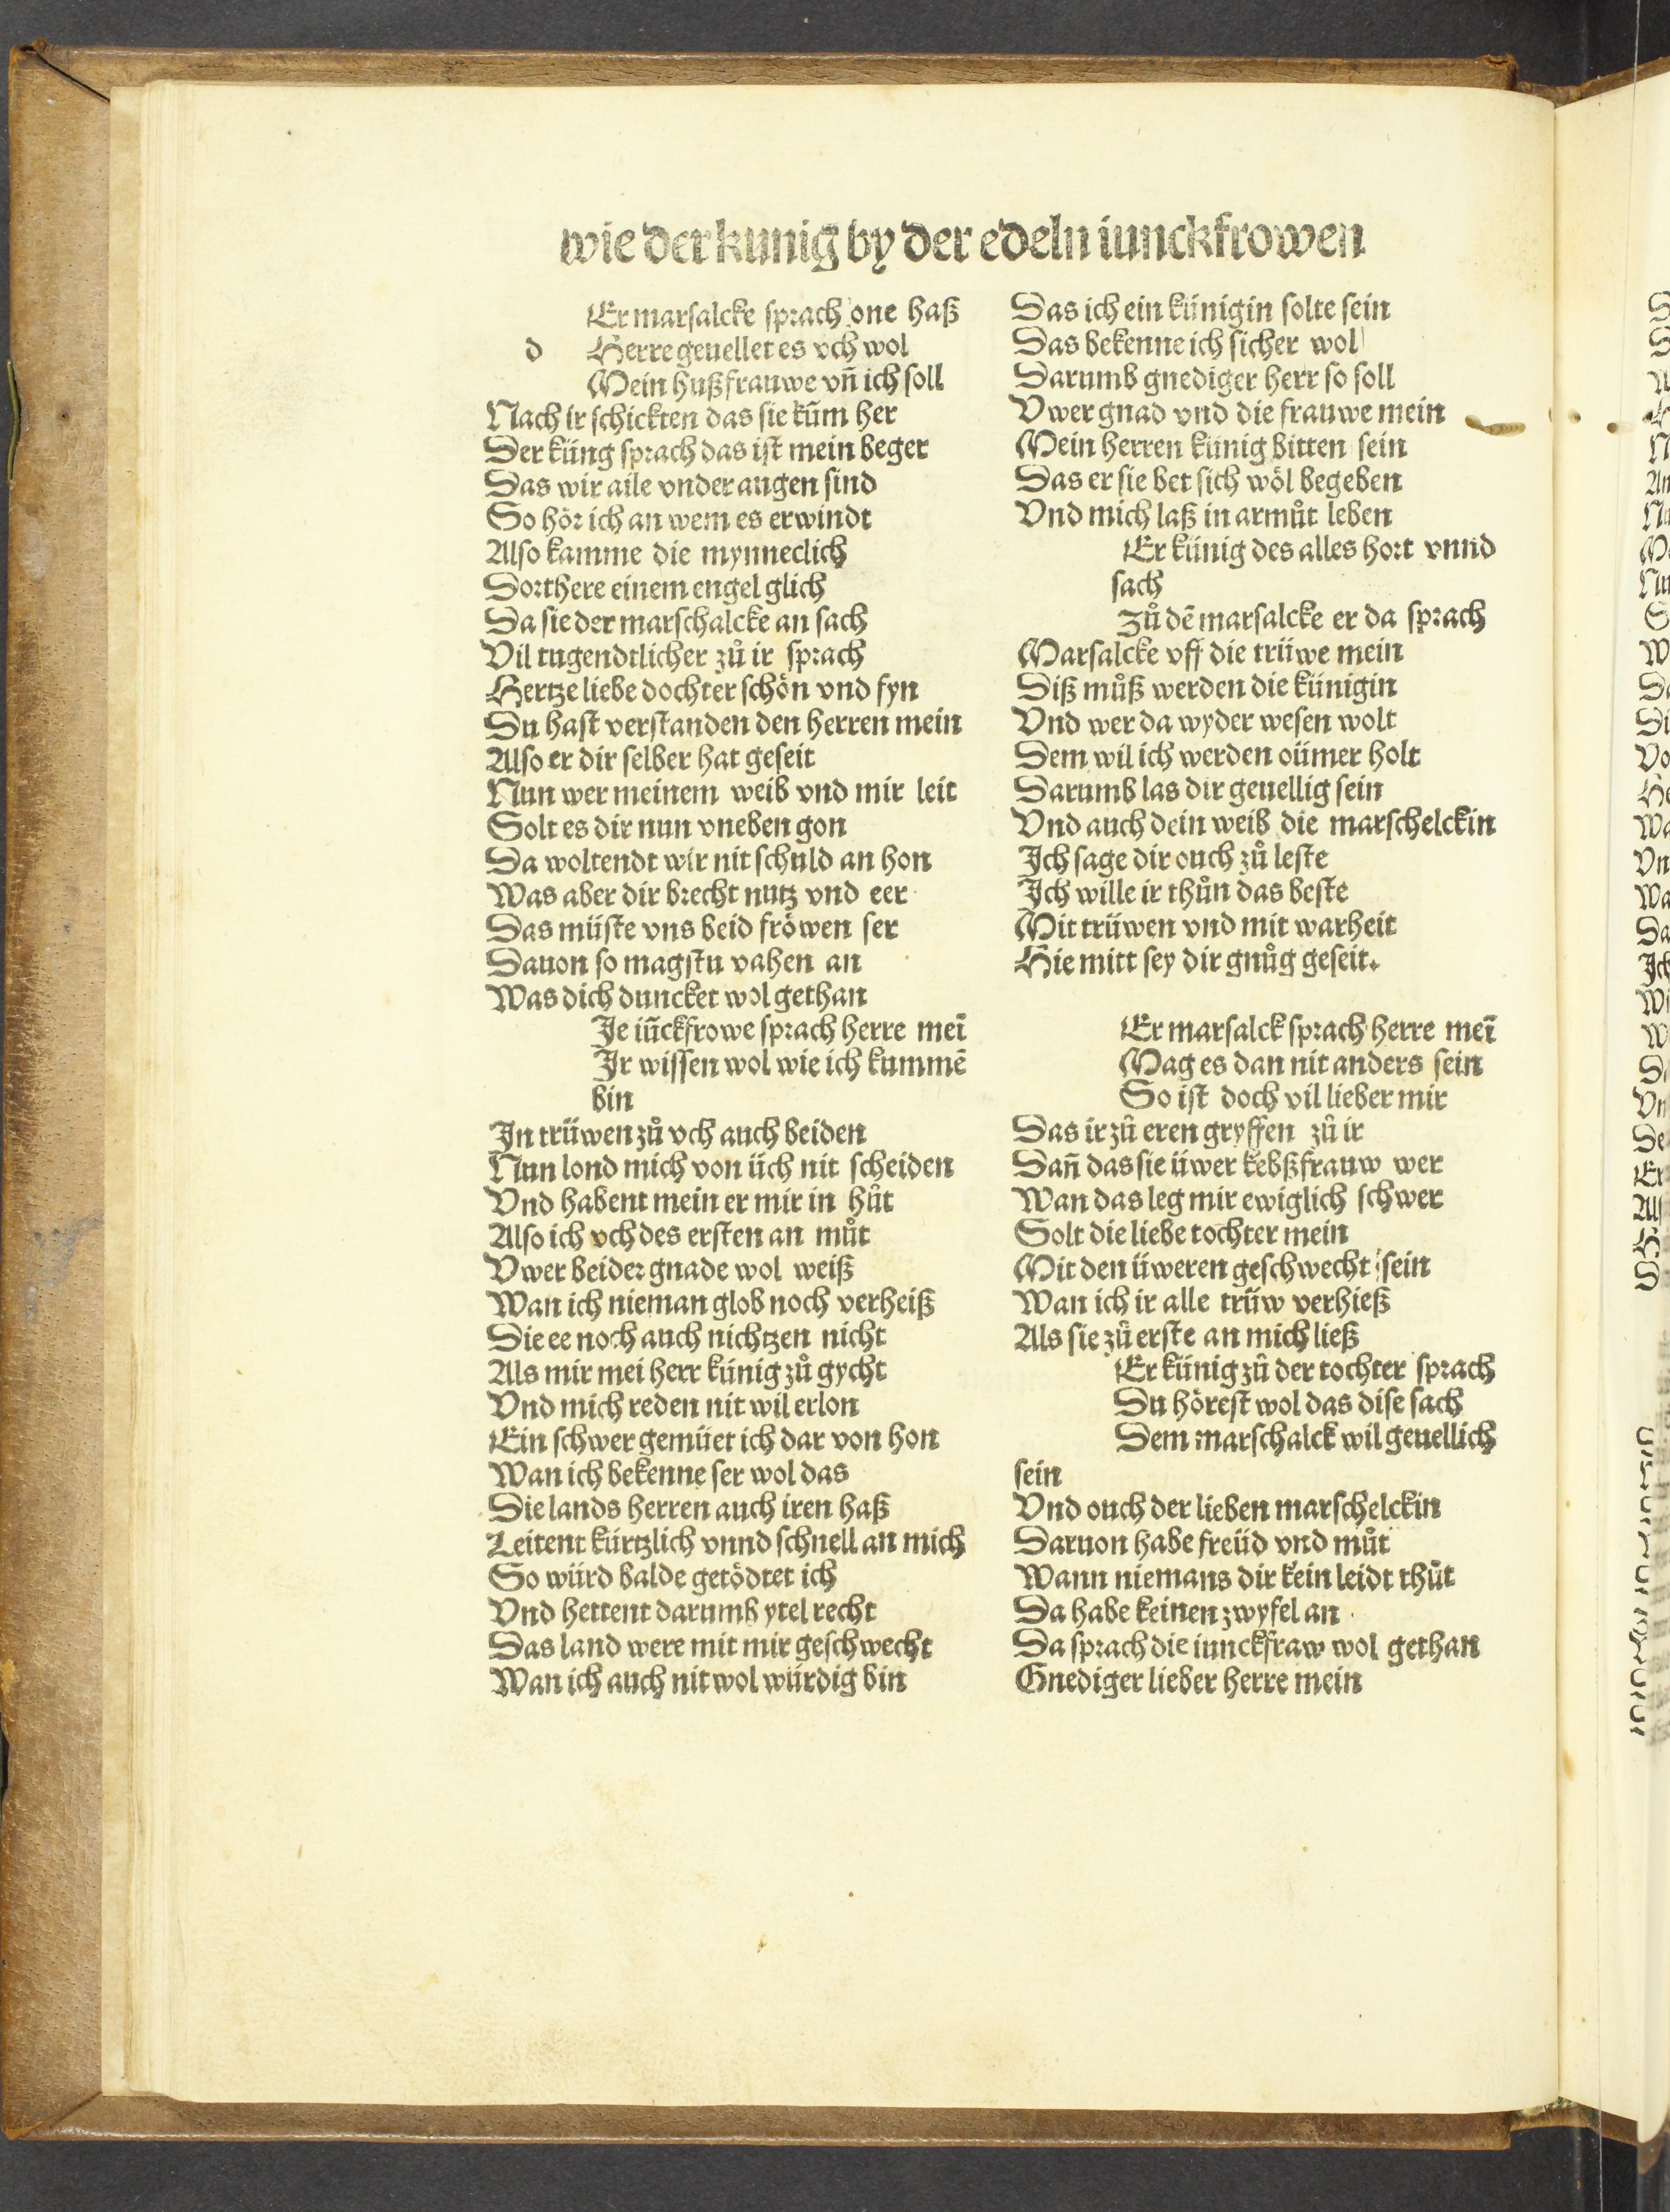 wie der kunig by der edeln iunckfrowen
Er marsalcke sprach one haß
d Herre geuellet es vch wol
Mein hußfrauwe vn̄ ich soll
Nach ir schickten das sie kūm her
Der küng sprach das ist mein beger
Das wir alle vnder augen sind
So hör ich an wem es erwindt
Also kamme die mynneclich
Dorthere einem engel glich
Da sie der marschalcke an sach
Vil tugendtlicher zů ir sprach
Hertze liebe dochter schön vnd fyn
Du hast verstanden den herren mein
Also er dir selber hat geseit
Nun wer meinem weib vnd mir leit
Solt es dir nun vneben gon
Da woltendt wir nit schuld an hon
Was aber dir brecht nutz vnd eer
Das müste vns beid fröwen ser
Dauon so magstu vahen an
Was dich duncket wol gethan
Je iūckfrowe sprach herre meī
Jr wissen wol wie ich kummē
bin
Jn trüwen zů vch auch beiden
Nun lond mich von üch nit scheiden
Vnd habent mein er mir in hůt
Also ich vch des ersten an můt
Vwer beider gnade wol weiß
Wan ich nieman glob noch verheiß
Die ee noch auch nichtzen nicht
Als mir mei herr künig zů gycht
Vnd mich reden nit wil erlon
Ein schwer gemüet ich dar von hon
Wan ich bekenne ser wol das
Die lands herren auch iren haß
Leitent kürtzlich vnnd schnell an mich
So würd balde getödtet ich
Vnd hettent darumb ytel recht
Das land were mit mir geschwecht
Wan ich auch nit wol würdig bin
Das ich ein künigin solte sein
Das bekenne ich sicher wol
Darumb gnediger herr so soll
Vwer gnad vnd die frauwe mein
Mein herren künig bitten sein
Das er sie bet sich wöl begeben
Vnd mich laß in armůt leben
Er künig des alles hort vnnd
sach
Zů dē marsalcke er da sprach
Marsalcke vff die trüwe mein
Diß můß werden die künigin
Vnd wer da wyder wesen wolt
Dem wil ich werden oümer holt
Darumb las dir geuellig sein
Vnd auch dein weib die marschelckin
Jch sage dir ouch zů leste
Jch wille ir thůn das beste
Mit trüwen vnd mit warheit
Hie mitt sey dir gnůg geseit.
Er marsalck sprach herre meī
Mag es dan nit anders sein
So ist doch vil lieber mir
Das ir zů eren gryffen zů ir
Dan̄ das sie üwer kebßfrauw wer
Wan das leg mir ewiglich schwer
Solt die liebe tochter mein
Mit den üweren geschwecht sein
Wan ich ir alle trüw verhieß
Als sie zů erste an mich ließ
Er künig zů der tochter sprach
Du hörest wol das dise sach
Dem marschalck wil geuellich
sein
Vnd ouch der lieben marschelckin
Daruon habe freüd vnd můt
Wann niemans dir kein leidt thůt
Da habe keinen zwyfel an
Da sprach die iunckfraw wol gethan
Gnediger lieber herre mein